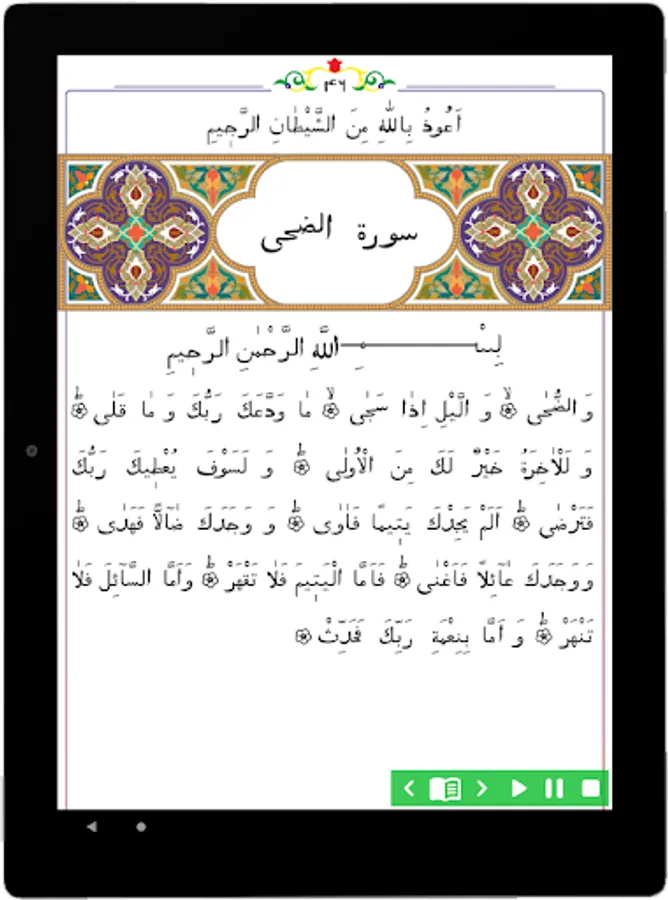 ۱۴۶
اَعُوذُ بِاللّٰهِ مِنَ الشَّيْطَانِ الرَّجٖيمِ
سورة الضحى
بِسْمِ اللّٰهِ الرَّحْمٰنِ الرَّحٖيمِ
وَ الضُّحٰى ۙ وَ الَّيْلِ اِذَا سَجٰى ۙ مَا وَدَّعَكَ رَبُّكَ وَ مَا قَلٰى ۜ
وَ لَلْاٰخِرَةُ خَيْرٌ لَكَ مِنَ الْاُولٰى ۜ وَ لَسَوْفَ يُعْطٖيكَ رَبُّكَ
فَتَرْضٰى ۜ اَلَمْ يَجِدْكَ يَتٖيمًا فَاٰوٰى ۖ وَ وَجَدَكَ ضَٓالًّا فَهَدٰى ۖ
وَ وَجَدَكَ عَٓائِلًا فَاَغْنٰى ۜ فَاَمَّا الْيَتٖيمَ فَلَا تَقْهَرْ ۜ وَاَمَّا السَّٓائِلَ فَلَا
تَنْهَرْ ۜ وَ اَمَّا بِنِعْمَةِ رَبِّكَ فَحَدِّثْ